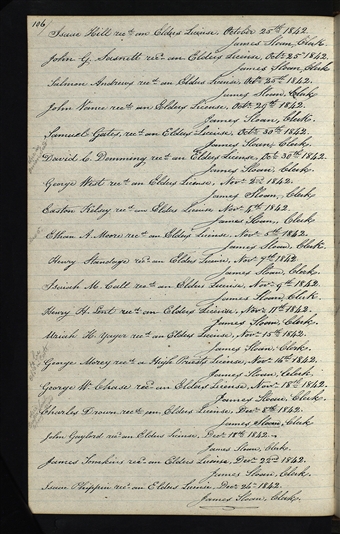 106
Isaac Hill recd. an Elders License. October 25th 1842.
James Sloan, Clerk.
John G. recd. an Elders License, Octr. 25th 1842.
James Sloan, Clerk.
Salmon Andrews recd. an Elders License, Octr. 25th 1842.
James Sloan, Clerk
John Vance recd. an Elders License, Octr. 29th 1842.
James Sloan, Clerk.
Samuel Gates, recd. an Elders License, Octr. 30th 1842.
James Sloan, Clerk.
David C. Demming, recd. an Elders License, Octr. 30th 1842.
James Sloan, Clerk.
George West recd. an Elders License, Novr. 2nd 1842.
James Sloan, Clerk
Easton Kelsey recd. an Elders License Novr. 4th 1842.
James Sloan, Clerk
Ethan A. Moore recd. an Elders License, Novr. 5th 1842.
James Sloan, Clerk.
Henry Standage recd. an Elders License, Novr. 7th 1842.
James Sloan, Clerk.
recd. an Elders License, Novr. 9th 1842.
James Sloan, Clerk
Henry H. recd. an Elders License, Novr. 11th 1842.
James Sloan, Clerk.
Uriah H. Yager recd. an Elders License, Novr. 15th 1842.
James Sloan, Clerk.
George Morey recd. an High Priests License, Novr. 16th 1842.
James Sloan, Clerk.
George W. Chase recd. an Elders License, Novr. 18th 1842.
James Sloan, Clerk.
Charles Drown, recd. an Elders License, Decr. 8th 1842.
James Sloan, Clerk
John Gaylord recd. an Elders License, Decr. 18th 1842.
James Sloan, Clerk.
James Tomkins recd. an Elders License, Decr. 22nd 1842.
James Sloan, Clerk.
Isaac Phippin recd. an Elders License, Decr. 24th 1842.
James Sloan, Clerk.